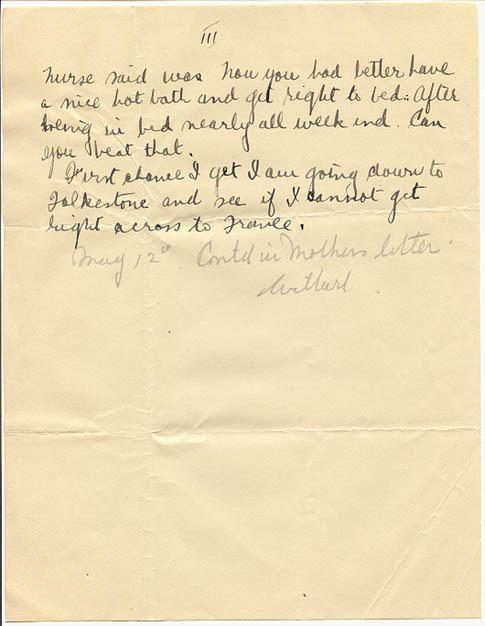 III
nurse said was now you had better have
a nice hot bath and get right to bed. After
being in bed nearly all week end. Can
you beat that.
First chance I get I am going down to
Folkestone and see if I cannot get
right across to France.
May 12" Contd in Mothers letter.